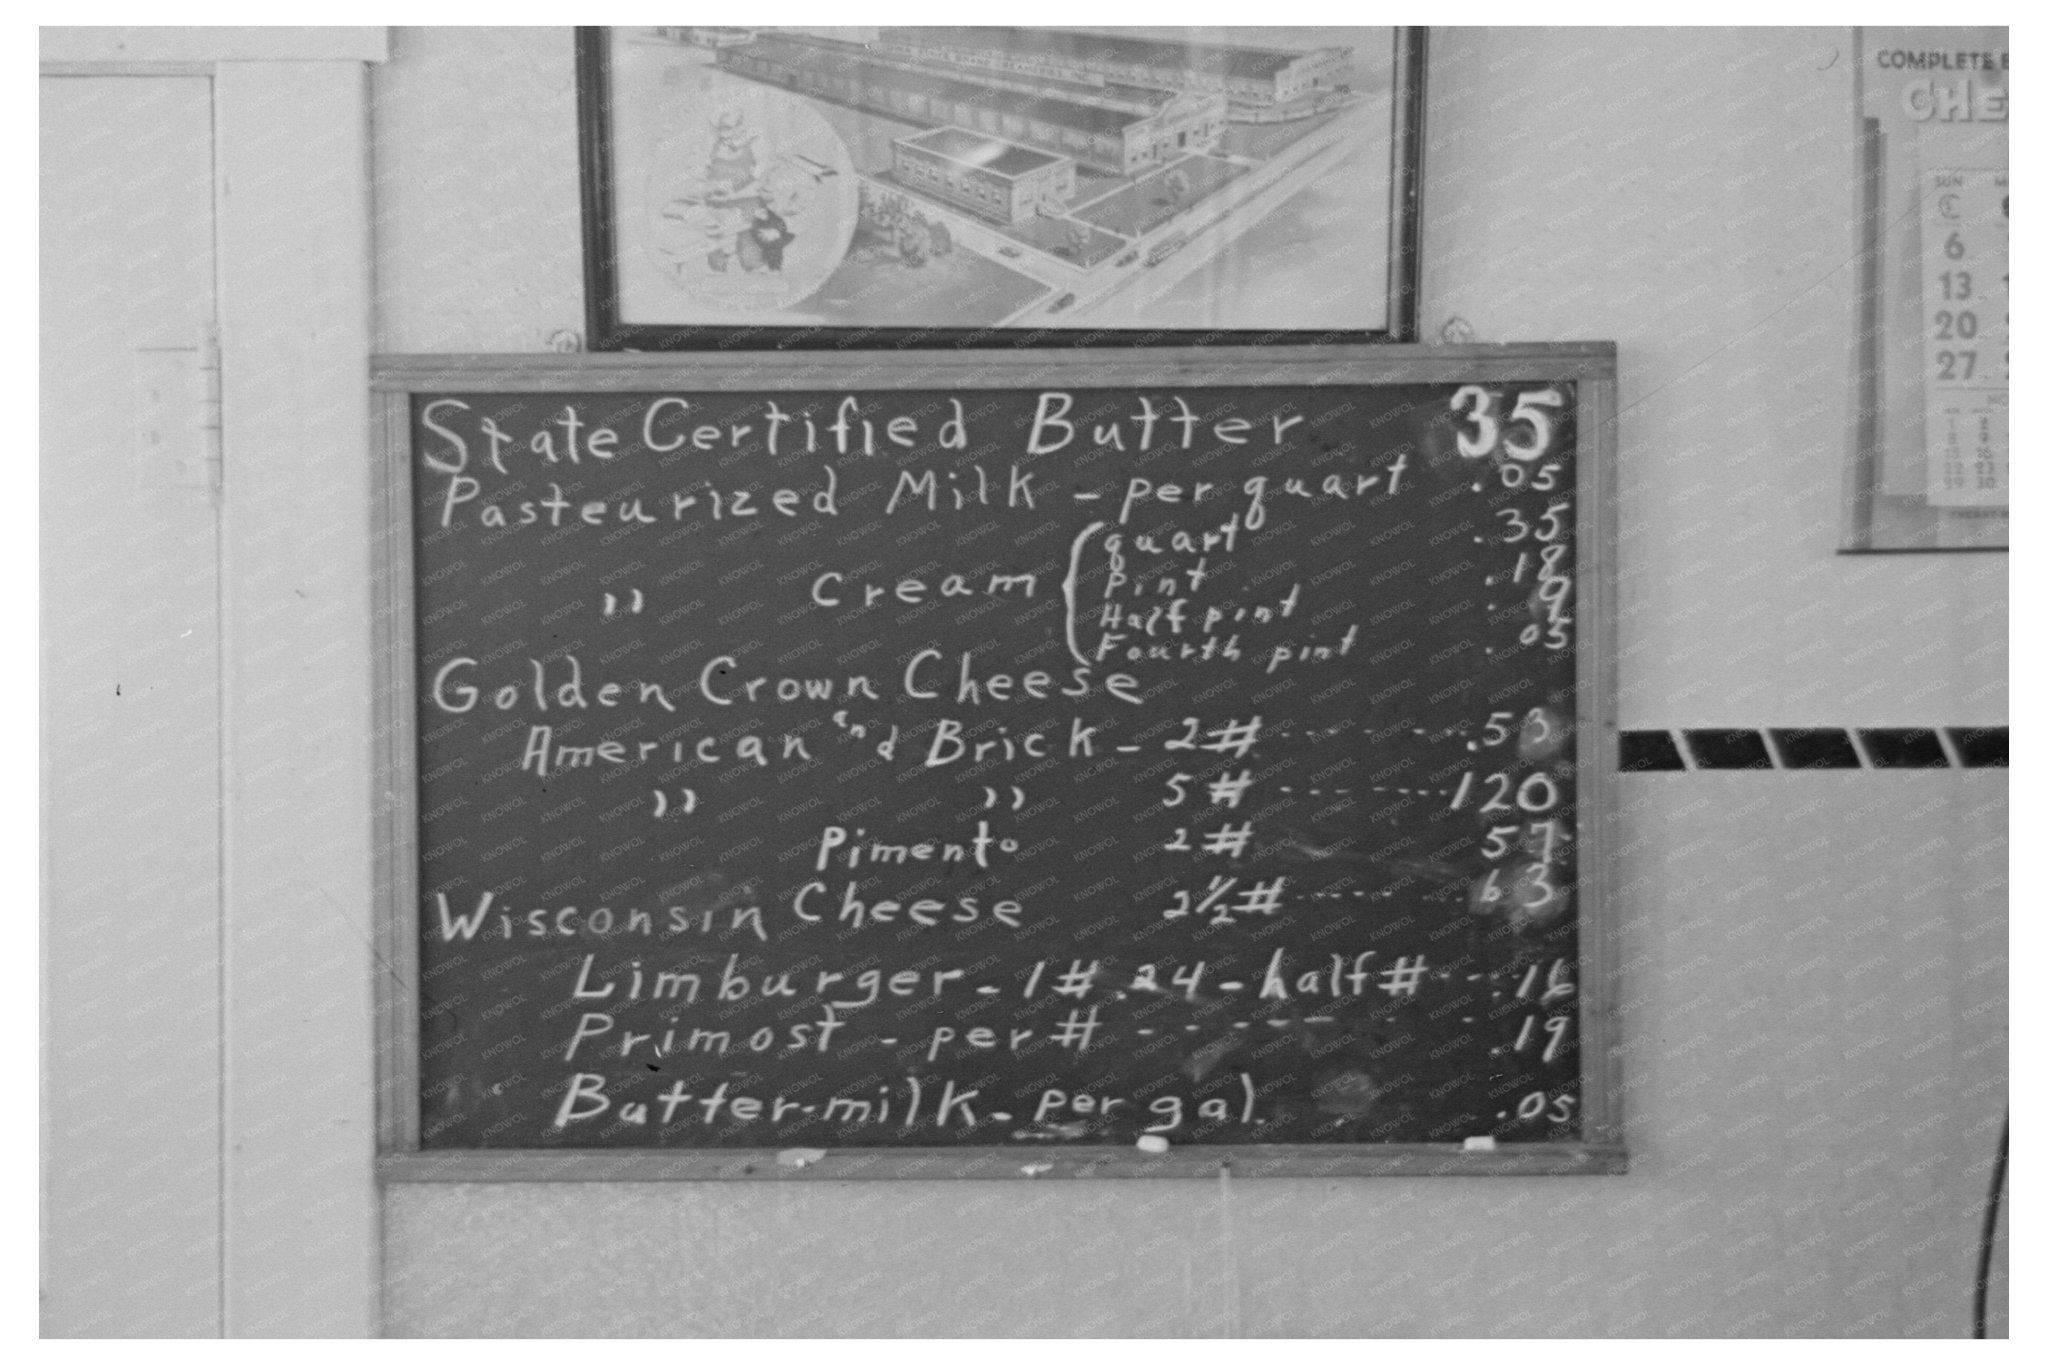 COMPLETE
CHE
SUN
6
13
20
27
State Certified Butter 35
Pasteurized Milk - per quart .05
" Cream { quart .35
pint .18
Half pint .9
Fourth pint .05
Golden Crown Cheese
American and Brick - 2# ------- .53
" " 5# ------- 120
Pimento 2# 57
Wisconsin Cheese 2½# ------- 63
Limburger - 1# .24 - half# ---- .16
Primost - per # - - - - - - - .19
Butter-milk - per gal. .05
KNOWOL